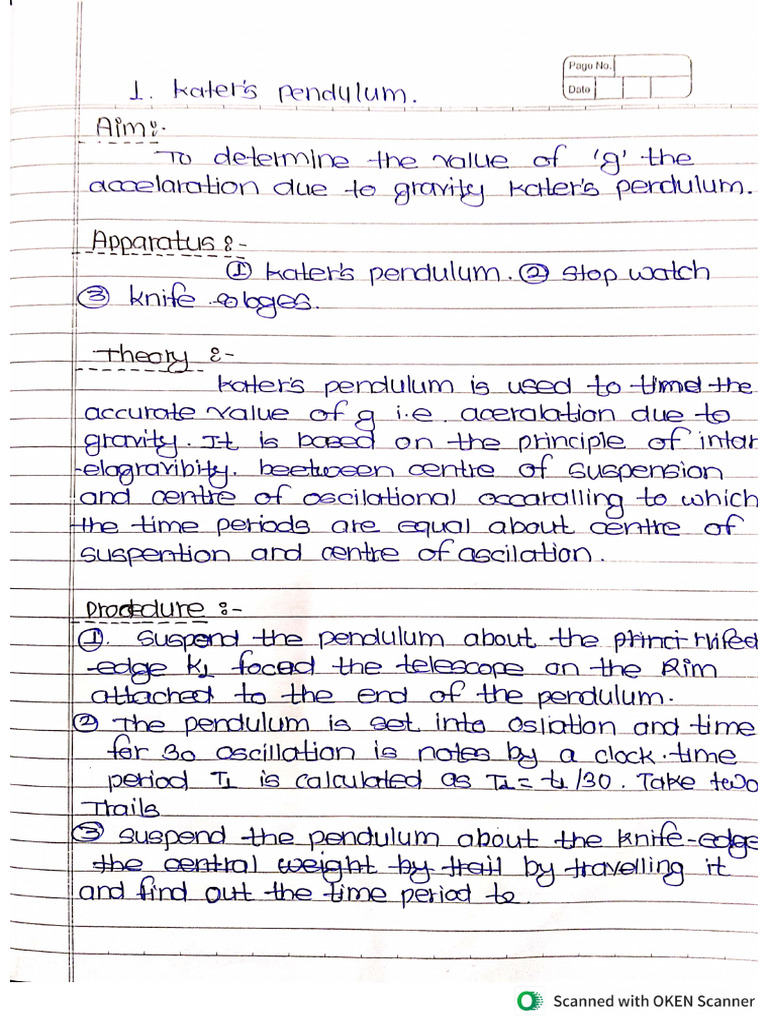 Page No.
Date
1. Kater's pendylum.
Aim:-
To determine the value of 'g' the
accelaration due to gravity Kater's perdulum.
Apparatus :-
① Kater's pendulum. ② stop watch
③ knife
Theory :-
Kater's pendulum is used to the
accurate value of g i.e. aceralation due to
gravity. It is based on the principle of intar
-elogravibity. beetween centre of suspension
and centre of oscilational occaralling to which
the time periods are equal about centre of
suspention and centre of ascilation.
Procedure :-
①. Suspend the pendulum about the
-edge K1 foced the telescope on the Rim
attached to the end of the perdulum.
② The pendulum is set into osliation and time
for 30 oscillation is notes by a clock.time
period T1 is calculated as T1 = t1/30. Take two
Trails
③ suspend the pendulum about the knife-edge
the central weight by trail by travelling it
and find out the time period to
Scanned with OKEN Scanner